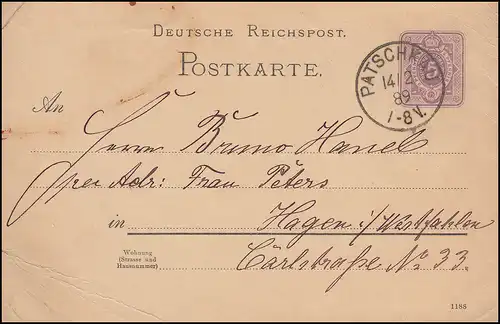 DEUTSCHE REICHSPOST.
POSTKARTE.
PATSCHKAU
14/2
89
7-8V.
An
Herrn Bruno Hanel
per Adr: Frau Peters
in Hagen i/Westfahlen
Wohnung
(Strasse und
Hausnummer)
Carlstraße No 33.
1188